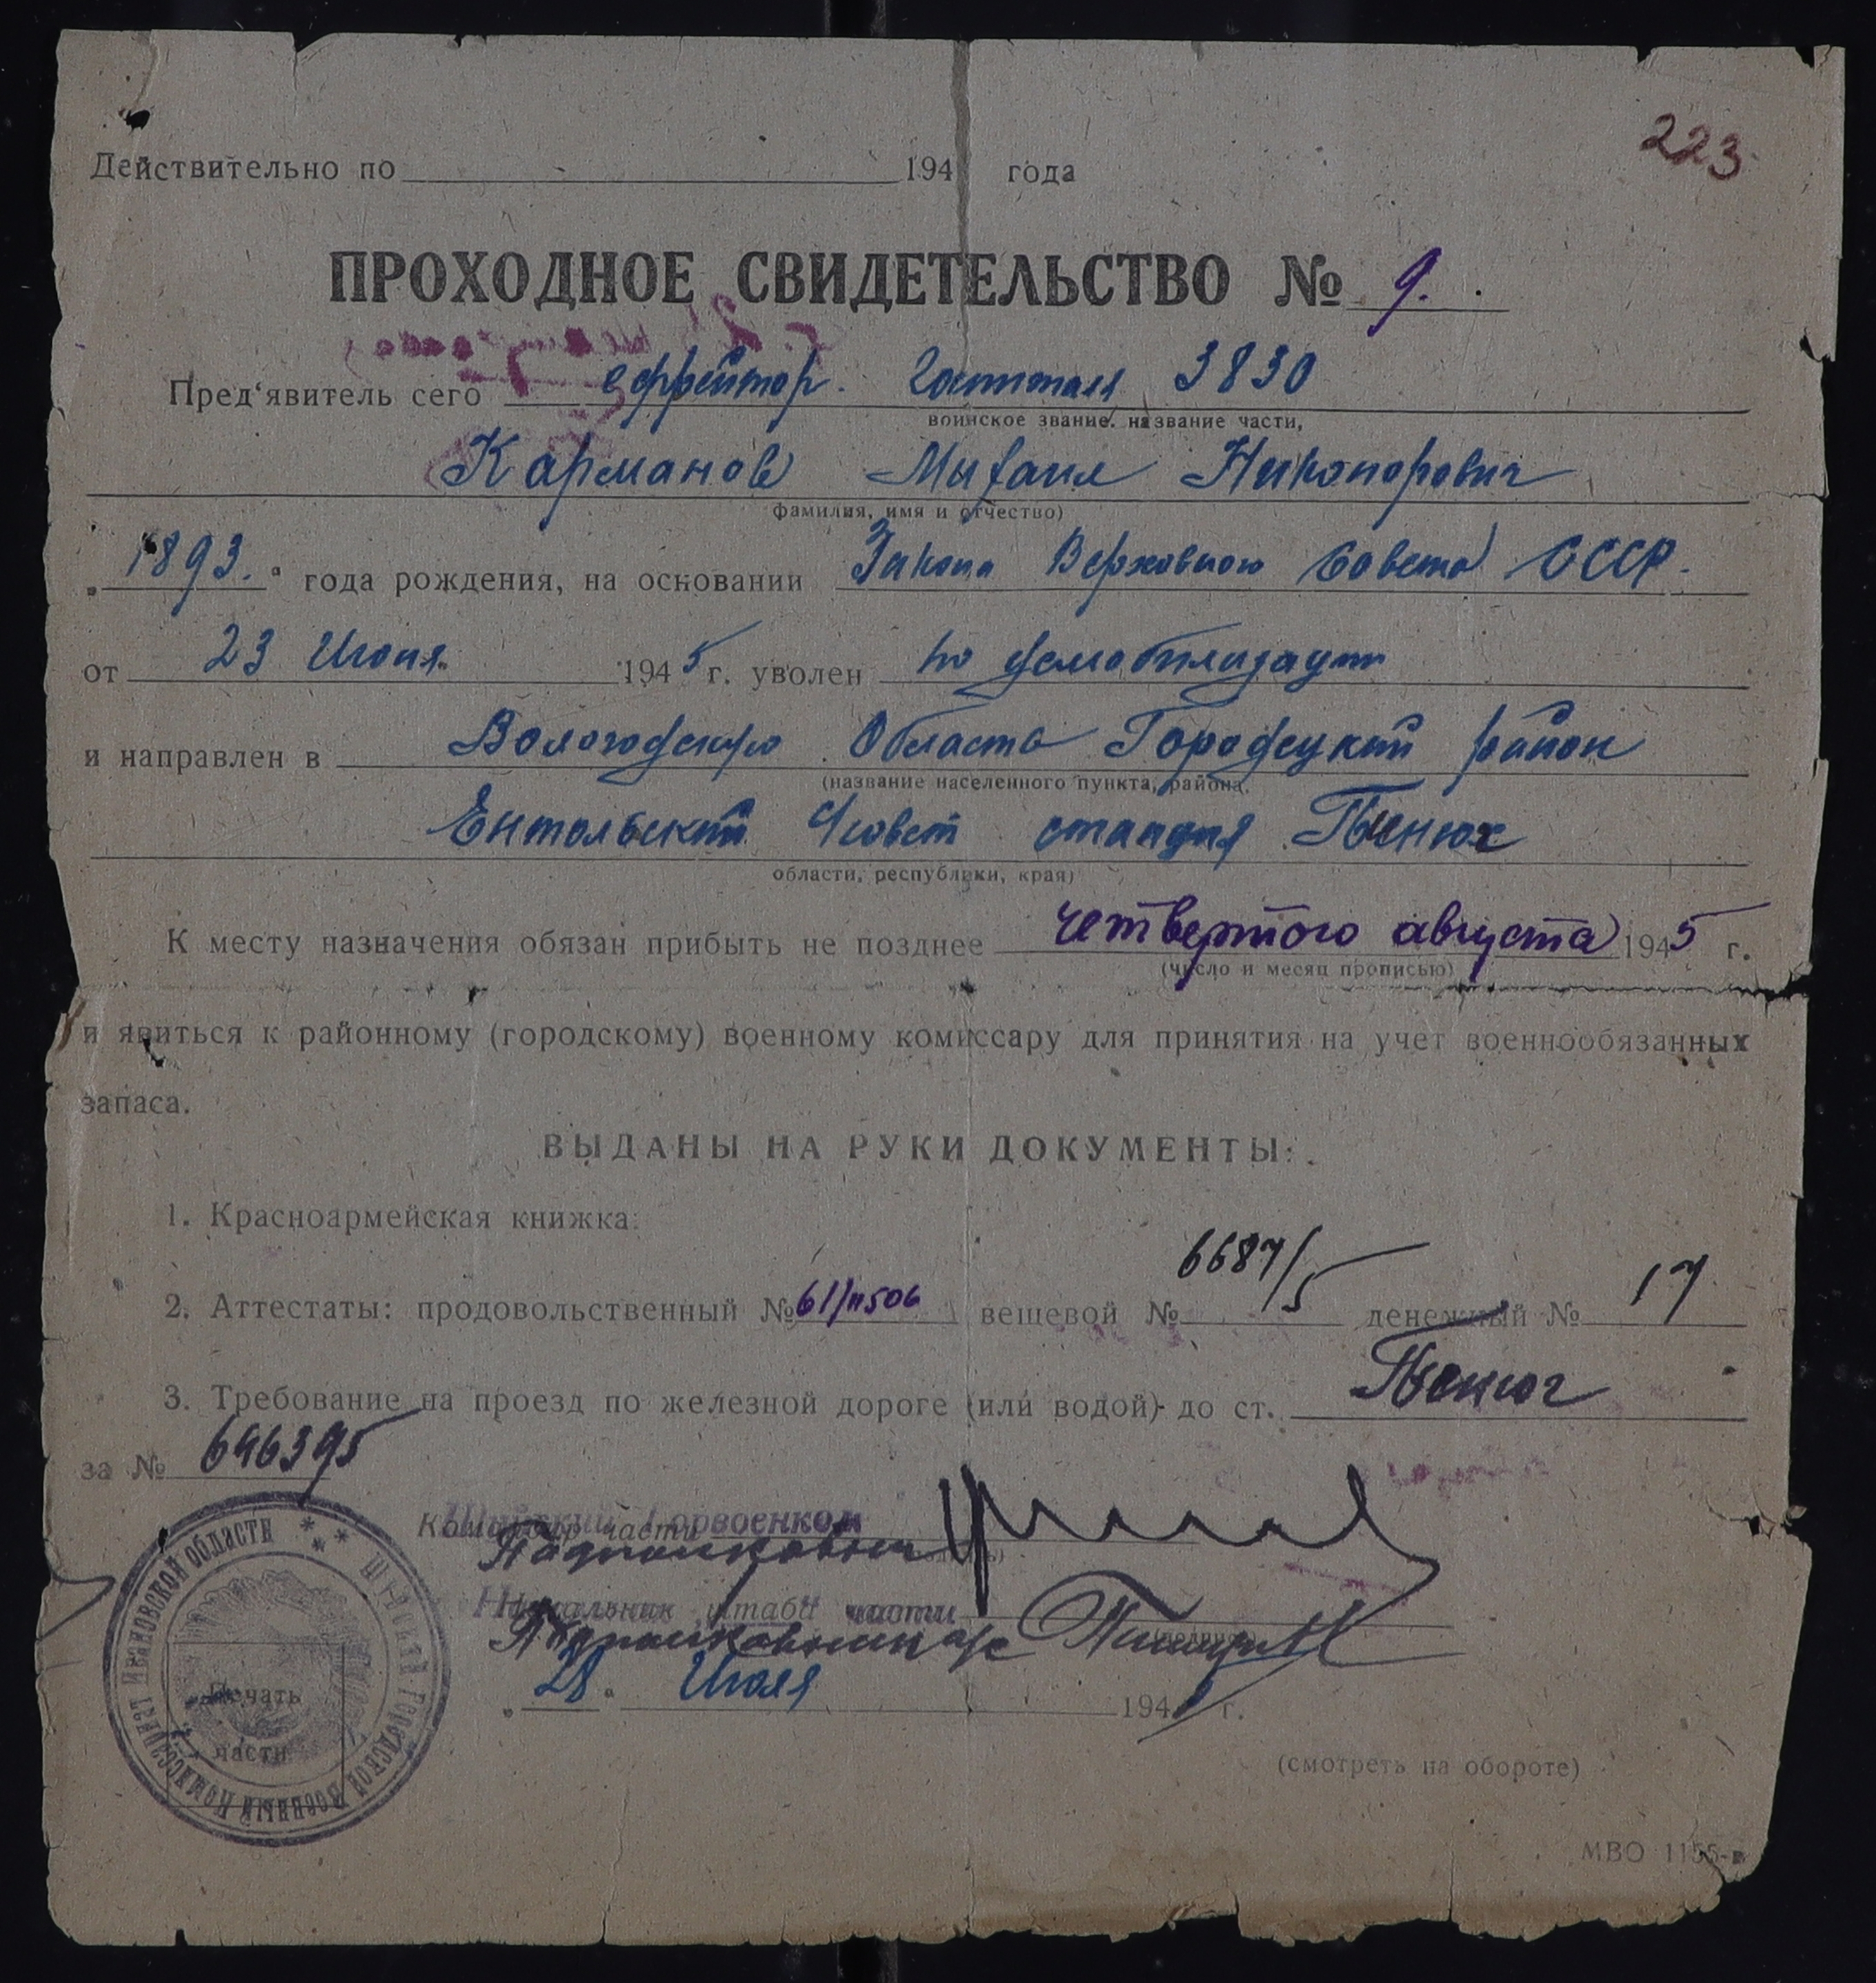 223
Действительно по 194 года
ПРОХОДНОЕ СВИДЕТЕЛЬСТВО № 9.
Пред'явитель сего ефрейтор. Госпиталя 3830
воинское звание. название части,
Карманов Михаил Никонорович
фамилия, имя и отчество)
„1893." года рождения, на основании Закона Верховного Совета СССР.
от 23 Июня 1945 г. уволен по демобилизации
и направлен в Вологодскую Область Городецкий район
(название населенного пункта, района,
Ентольский С/совет станция Пинюг
области, республики, края)
К месту назначения обязан прибыть не позднее четвертого августа 1945 г.
(число и месяц прописью)
и явиться к районному (городскому) военному комиссару для принятия на учет военнообязанных
запаса.
ВЫДАНЫ НА РУКИ ДОКУМЕНТЫ:
1. Красноармейская книжка.
2. Аттестаты: продовольственный №61/11506 вещевой № 6687/5 денежный № 17
3. Требование на проезд по железной дороге (или водой) до ст. Пинюг
за № 646395
Командир части
Шуйский Горвоенком
Подполковник
Начальник штаба части
„28" Июля 194 г.
Печать
части
ШУЙСКИЙ ГОРОДСКОЙ ВОЕННЫЙ КОМИССАРИАТ ИВАНОВСКОЙ ОБЛАСТИ
(смотреть на обороте)
МВО 1155-в